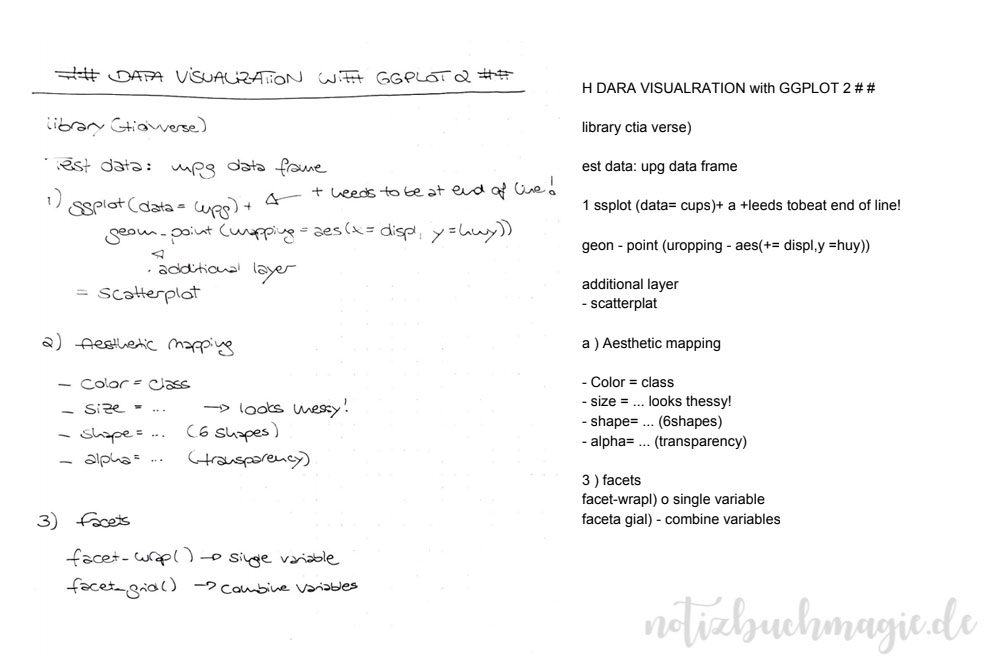 ## DATA VISUALIZATION WITH GGPLOT2 ##
library (tidyverse)
Test data: mpg data frame
1) ggplot(data = mpg) + ← + needs to be at end of line!
geom_point (mapping = aes(x = displ, y = hwy))
additional layer
= scatterplot
2) Aesthetic mapping
- color = class
- size = ... → looks messy!
- shape = ... (6 shapes)
- alpha = ... (transparency)
3) facets
facet_wrap() → single variable
facet_grid() → combine variables
H DARA VISUALRATION with GGPLOT 2 # #
library ctia verse)
est data: upg data frame
1 ssplot (data= cups)+ a +leeds tobeat end of line!
geon - point (uropping - aes(+= displ,y =huy))
additional layer
- scatterplat
a ) Aesthetic mapping
- Color = class
- size = ... looks thessy!
- shape= ... (6shapes)
- alpha= ... (transparency)
3 ) facets
facet-wrapl) o single variable
faceta gial) - combine variables
notizbuchmagie.de